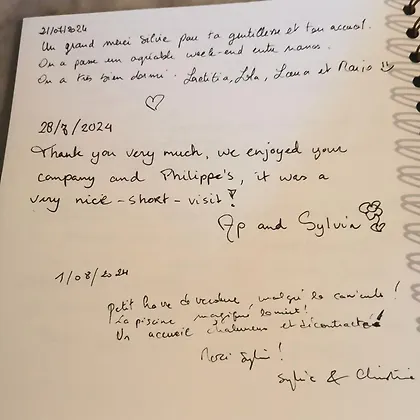 21/07/2024
Un grand merci Silvie pour ta gentillesse et ton accueil.
On a passé un agréable week-end entre nanas.
On a très bien dormi. Laetitia, Lola, Laura et Marjo
28/8/2024
Thank you very much, we enjoyed your
company and Philippe's, it was a
very nice-short-visit!
Ap and Sylvia
1/08/2024
Petit havre de verdure, malgré la canicule!
La piscine magique la nuit!
Un accueil chaleureux et décontracté!
Merci Sylvie!
Sylvie & Christine